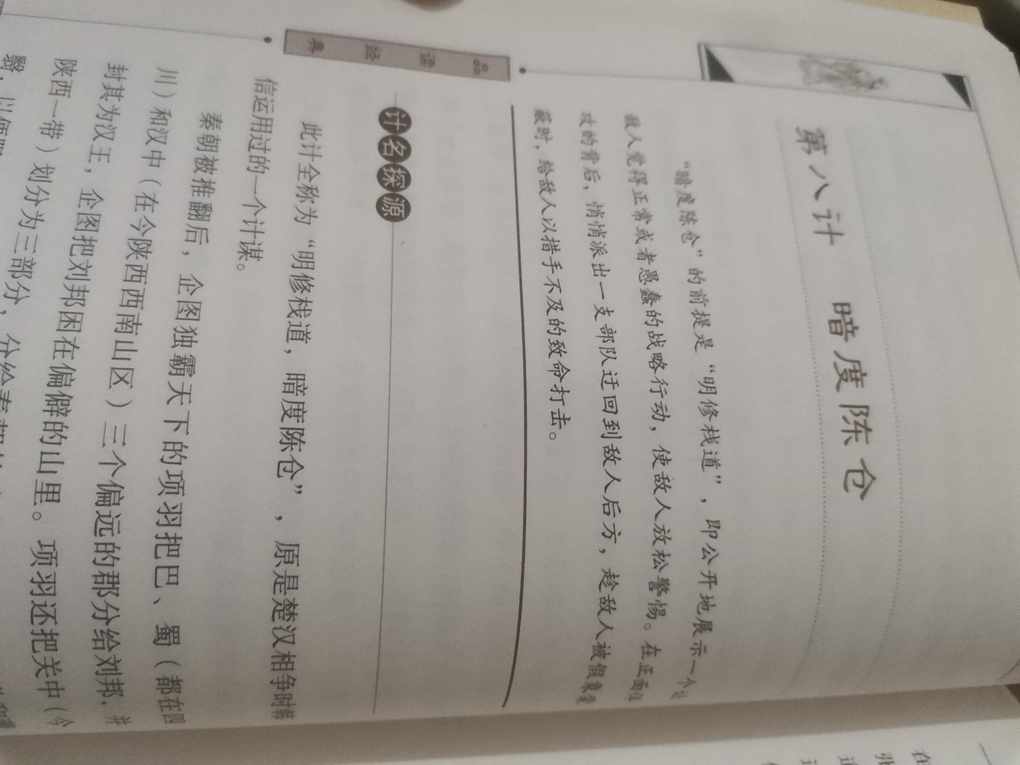 第八计 暗度陈仓
“暗度陈仓”的前提是“明修栈道”，即公开地展示一个让
敌人觉得正常或者愚蠢的战略行动，使敌人放松警惕。在正面佯
攻的背后，悄悄派出一支部队迂回到敌人后方，趁敌人被假象蒙
蔽时，给敌人以措手不及的致命打击。
品读经典
计名探源
此计全称为“明修栈道，暗度陈仓”，原是楚汉相争时韩
信运用过的一个计谋。
秦朝被推翻后，企图独霸天下的项羽把巴、蜀（都在四
川）和汉中（在今陕西西南山区）三个偏远的郡分给刘邦，并
封其为汉王，企图把刘邦困在偏僻的山里。项羽还把关中（今
陕西一带）划分为三部分，分给秦朝